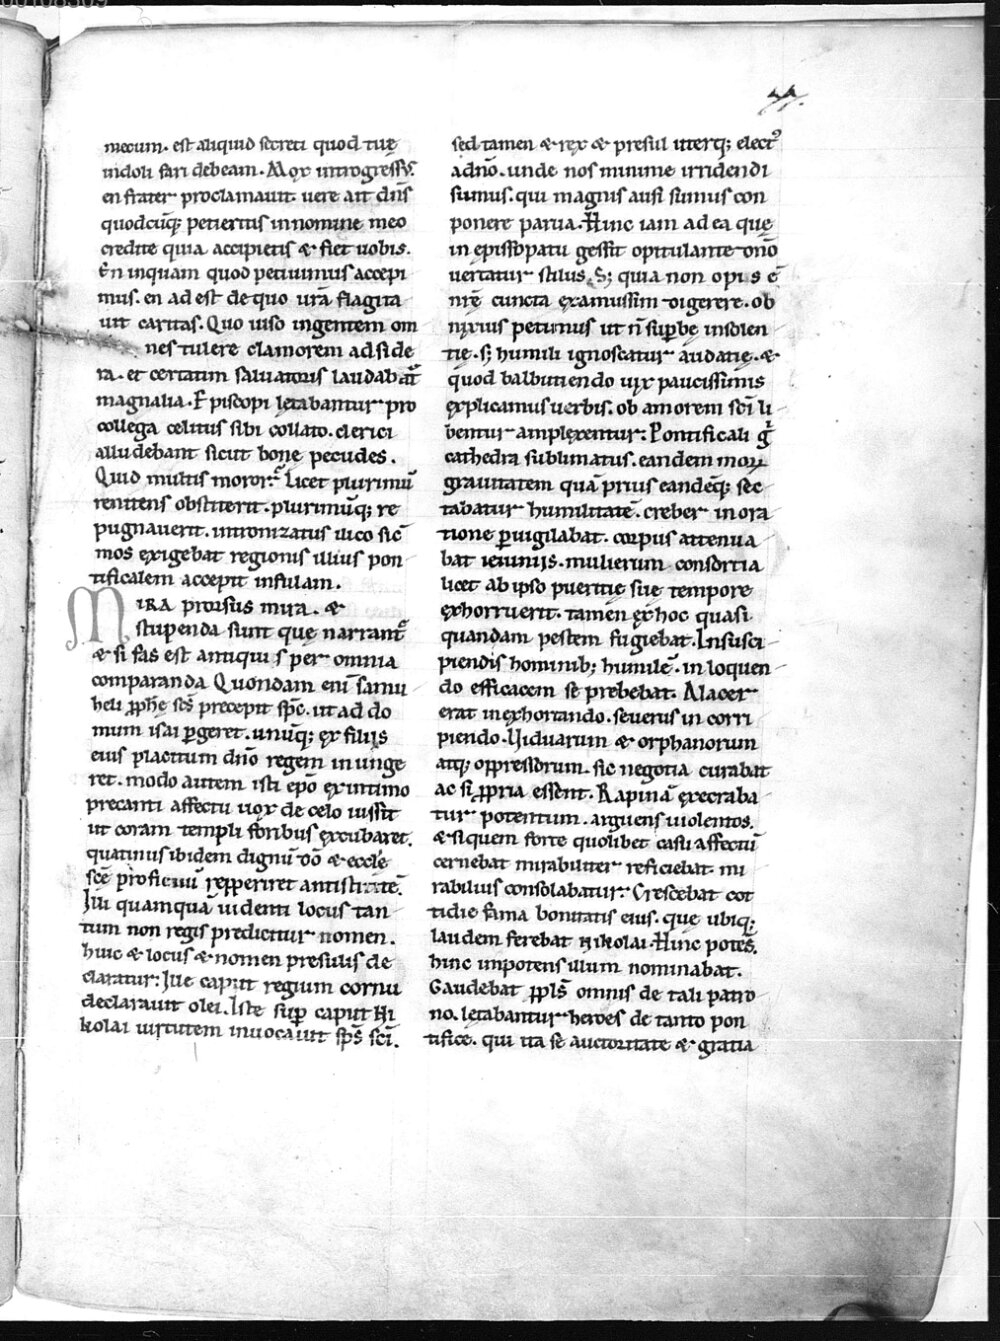 mecum. est aliquid secreti quod tuę
indoli fari debeam. Mox introgressꝰ.
en frater proclamauit. uere ait dn̄s
quodcūq; petieritis in nomine meo
credite quia accipietis & fiet uobis.
En inquam quod petiuimus accepi
mus. en adest de quo ur̄a flagita
uit caritas. Quo uiso ingentem om
nes tulere clamorem ad side
ra. et certatim saluatoris laudabāt
magnalia. Episcopi lętabantur pro
collega celitus sibi collato. clerici
alludebant sicut bonę pecudes.
Quid multis moror? Licet plurimū
renitens obstiterit. plurimūq; re
pugnauerit. intronizatus ilico sic̄
mos exigebat regionis illius pon
tificalem accepit infulam.
MIRA prorsus mira. &
stupenda sunt quę narrant᷑
& si fas est antiquis per omnia
comparanda Quondam enī samu
heli ꝓphę sc̄s precepit sp̄c. ut ad do
mum isai ꝑgeret. unūq; ex filiis
eius placitum dn̄o regem in unge
ret. modo autem isti ep̄o ex intimo
precanti affectu uox de celo iussit
ut coram templi foribus excubaret.
quatinus ibidem dignū dō & eccłe
scę proficuū repperiret antistitē.
Illi quamquā uidenti locus tan
tum non regis predicitur nomen.
huic & locus & nomen presulis de
claratur: Ille caput regium cornu
declarauit olei. Iste sup̄ caput Ni
kolai uirtutem inuocauit sp̄s sc̄i.
sed tamen & rex & presul uterq; electꝰ
a dn̄o. unde nos minime irridendi
sumus. qui magnis ausi sumus con
ponere parua. Hinc iam ad ea quę
in episcopatu gessit opitulante dn̄o
uertatur stilus. S; quia non opus ē
nr̄ę cuncta examussim digerere. ob
nixius petimus ut n̄ supbę insolen
tię. s; humili ignoscatur audatię. &
quod balbutiendo uix paucissimis
explicamus uerbis. ob amorem sc̄i li
benter amplexentur: Pontificali g̃
cathedra sublimatus. eandem moꝝ
grauitatem quā prius eandēq; sec
tabatur humilitatē. creber in ora
tione ꝑuigilabat. corpus attenua
bat ieiuniis. mulierum consortia
licet ab ipso pueritię suę tempore
exhorruerit. tamen ex hoc quasi
quandam pestem fugiebat. In susci
piendis hominib; humilē. in loquen
do efficacem se prębebat. Alacer
erat in exhortando. seuerus in corri
piendo. Uiduarum & orphanorum
atq; oppressorum. sic negotia curabat
ac si ꝓpria essent. Rapinā execraba
tur potentum. arguens uiolentos.
& si quem forte quolibet casu affectū
cernebat mirabiliter reficiebat. mi
rabilius consolabatur. Crescebat cot
tidie fama bonitatis eius. quę ubiq;
laudem ferebat Nikolai. Hinc potēs.
hinc impotens illum nominabat.
Gaudebat ppl̄s omnis de tali patro
no. lętabantur heroes de tanto pon
tifice. qui ita se auctoritate & gratia